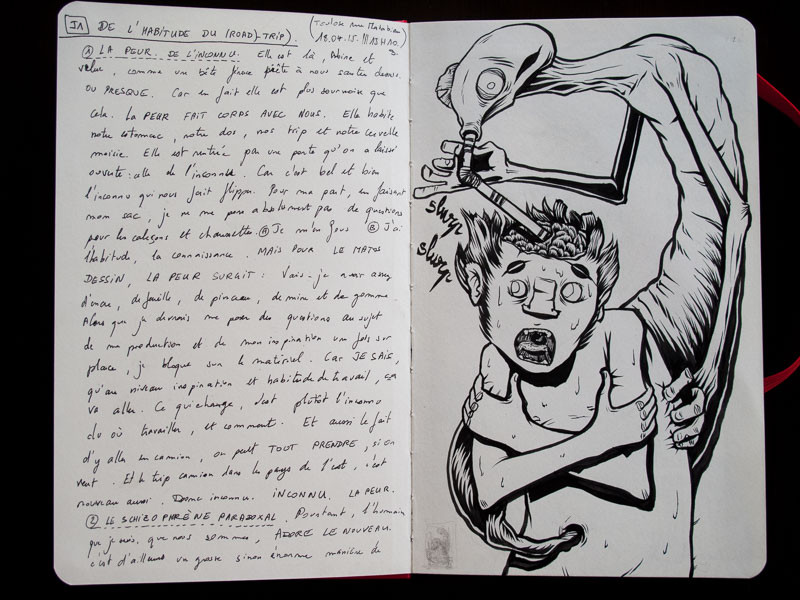 J1 DE L'HABITUDE DU (ROAD)-TRIP).
(Toulouse rue
18.04.15. 13H10.
① LA PEUR DE L'INCONNU. Elle est là, et
velue, comme un bête féroce prête à nous sauter dessus.
OU PRESQUE. Car en fait elle est plus sournoise que
cela. LA PEUR FAIT CORPS AVEC NOUS. Elle habite
notre estomac, notre dos, nos trip et notre cervelle
moisie. Elle est rentrée par une porte qu'on a laissé
ouverte: celle de l'inconnu. Car c'est bel et bien
l'inconnu qui nous fait flipper. Pour ma part, en faisant
mon sac, je ne me pose absolument pas de questions
pour les caleçons et chaussettes. Ⓐ Je m'en fous Ⓑ J'ai
l'habitude, la connaissance. MAIS POUR LE MATOS
DESSIN, LA PEUR SURGIT: Vais-je avoir assez
d'encre, de feuille, de pinceau, de mine et de gomme.
Alors que je devrais me poser des questions au sujet
de ma production et de mon inspiration une fois sur
place, je bloque sur le matériel. Car JE SAIS,
qu'au niveau inspiration et habitude de travail, ça
va aller. Ce qui change, c'est plutôt l'inconnu
du où travailler, et comment. Et aussi le fait
d'y aller en camion, on peut TOUT PRENDRE, si on
veut. Et le trip camion dans les pays de l'est, c'est
nouveau aussi. Donc inconnu. INCONNU. LA PEUR.
② LE SCHIZOPHRÈNE PARADOXAL. Pourtant, l'humain
que je suis, que nous sommes, ADORE LE NOUVEAU.
c'est d'ailleurs un grosse sinon énorme manière de
slurp
slurp